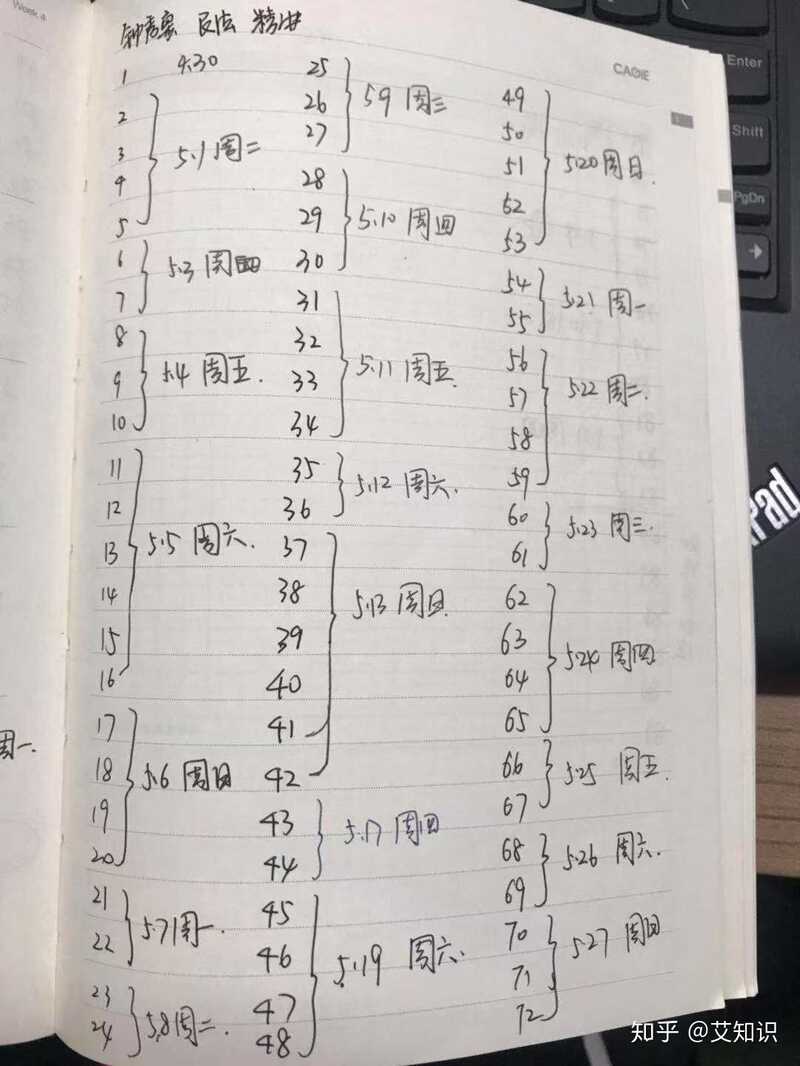 Week 4
钟秀案 民法 精讲
CAGIE
1 4.30
2
3
4
5
5.1 周二
6
7
5.3 周四
8
9
10
5.4 周五.
11
12
13
14
15
16
5.5 周六.
17
18
19
20
5.6 周日
21
22
5.7 周一.
23
24
5.8 周二.
25
26
27
5.9 周三
28
29
30
5.10 周四
31
32
33
34
5.11 周五.
35
36
5.12 周六.
37
38
39
40
41
42
5.13 周日.
43
44
5.17 周四
45
46
47
48
5.19 周六.
49
50
51
52
53
5.20 周日.
54
55
5.21 周一
56
57
58
59
5.22 周二.
60
61
5.23 周三.
62
63
64
65
5.24 周四
66
67
5.25 周五.
68
69
5.26 周六.
70
71
72
5.27 周日
周一.
Enter
Shift
PgDn
Pad
知乎 @艾知识